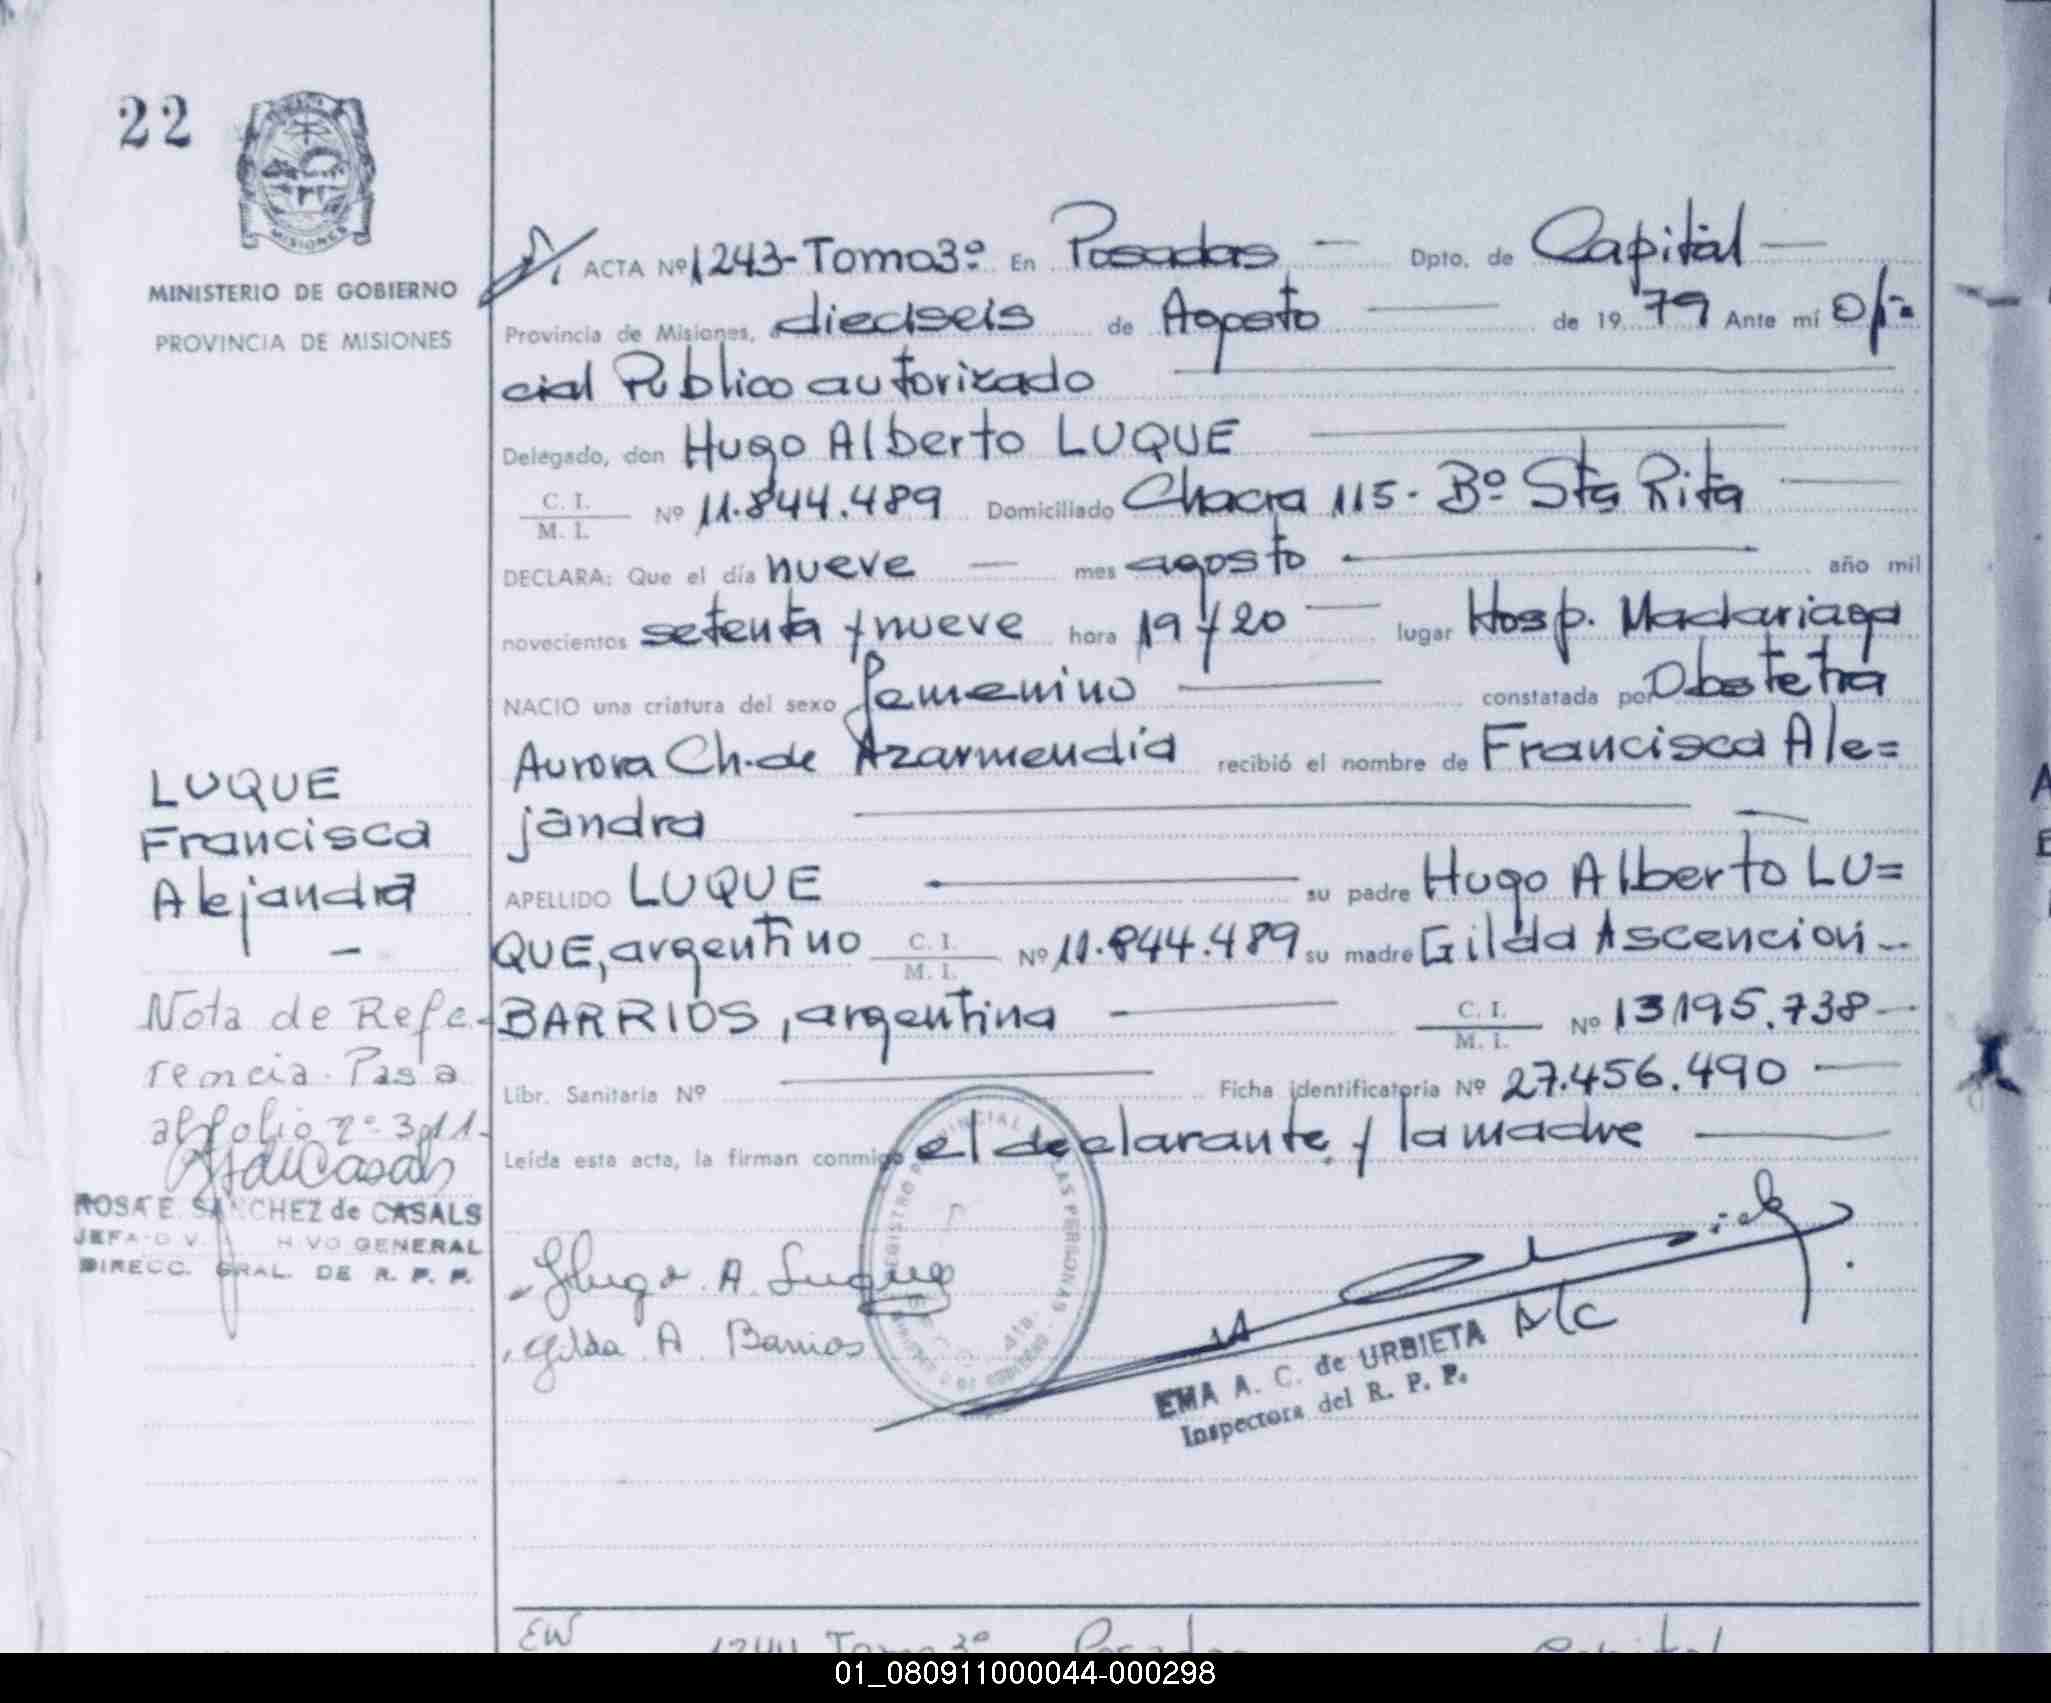 22
MISIONES
MINISTERIO DE GOBIERNO
PROVINCIA DE MISIONES
ACTA Nº 1243-Tomo 3º En Posadas — Dpto. de Capital —
Provincia de Misiones, a dieciseis de Agosto — de 1979 Ante mí Ofi=
cial Publico autorizado
Delegado, don Hugo Alberto LUQUE
C. I.
M. I.
Nº 11.844.489 Domiciliado Chacra 115 - Bº Sta Rita
DECLARA: Que el día nueve — mes agosto — año mil
novecientos setenta y nueve hora 19 y 20 — lugar Hosp. Madariaga
NACIO una criatura del sexo femenino — constatada por Obstetra
Aurora Ch. de Azarmendia recibió el nombre de Francisca Ale=
jandra
APELLIDO LUQUE — su padre Hugo Alberto LU=
QUE, argentino C. I. M. I. Nº 11.844.489 su madre Gilda Ascencion
BARRIOS, argentina — C. I. M. I. Nº 13195.738 —
Libr. Sanitaria Nº — Ficha identificatoria Nº 27.456.490 —
Leída esta acta, la firman conmigo el declarante y la madre
LUQUE
Francisca
Alejandra
—
Nota de Refe-
rencia. Pasa
al folio nº 311.
ROSA E. SANCHEZ de CASALS
GENERAL
DIRECC. GRAL. DE R. P. P.
Hugo A. Luque
Gilda A Barrios
LAS PERSONAS
A/C
EMA A. C. de URBIETA
Inspectora del R. P. P.
EW 1244 Tomo 3º Posadas Capital
01_080911000044-000298